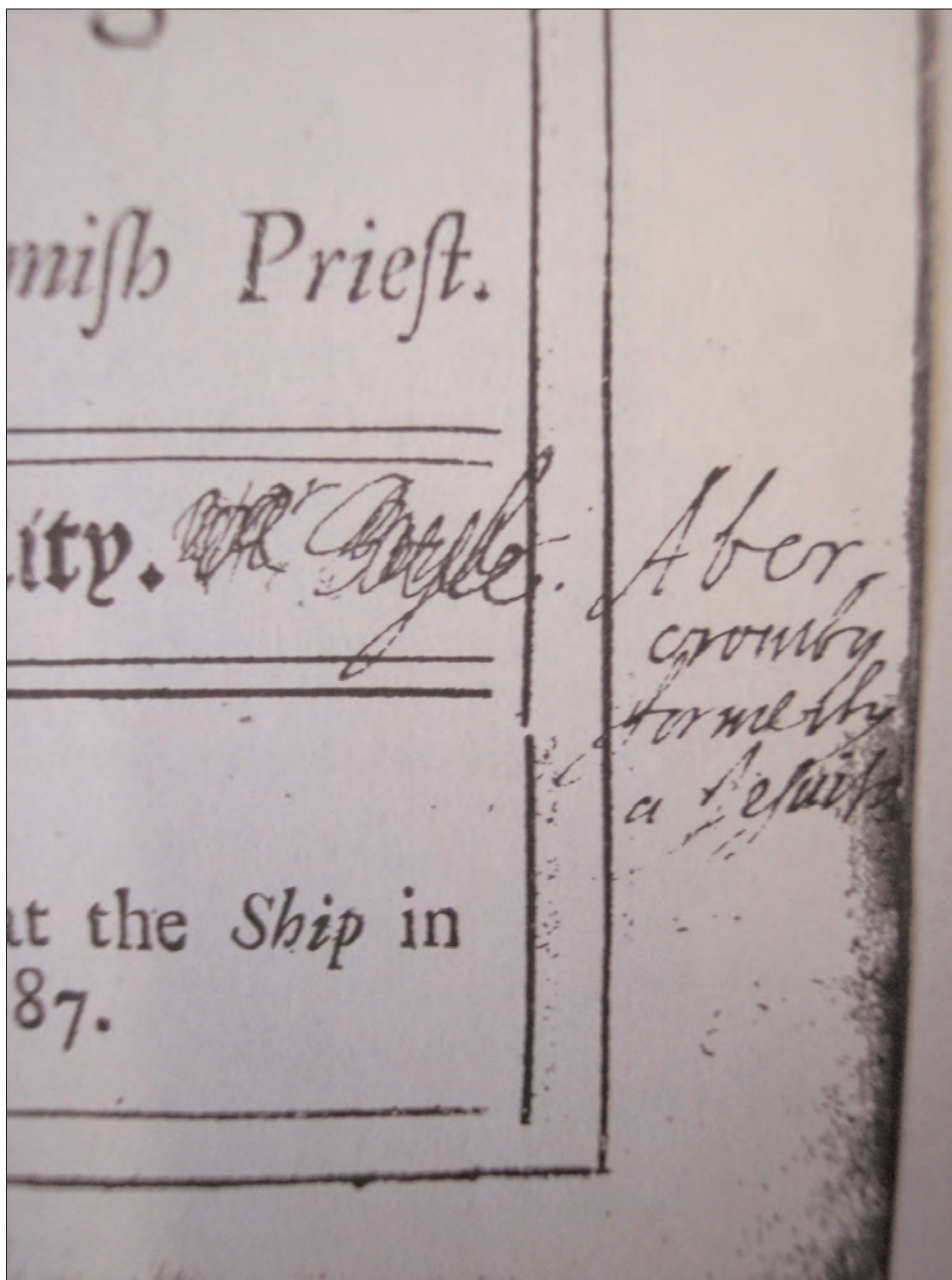 miſh Prieſt.
ity. Mr Boyle. Aber
cromby
formerly
a Jesuit
at the Ship in
87.